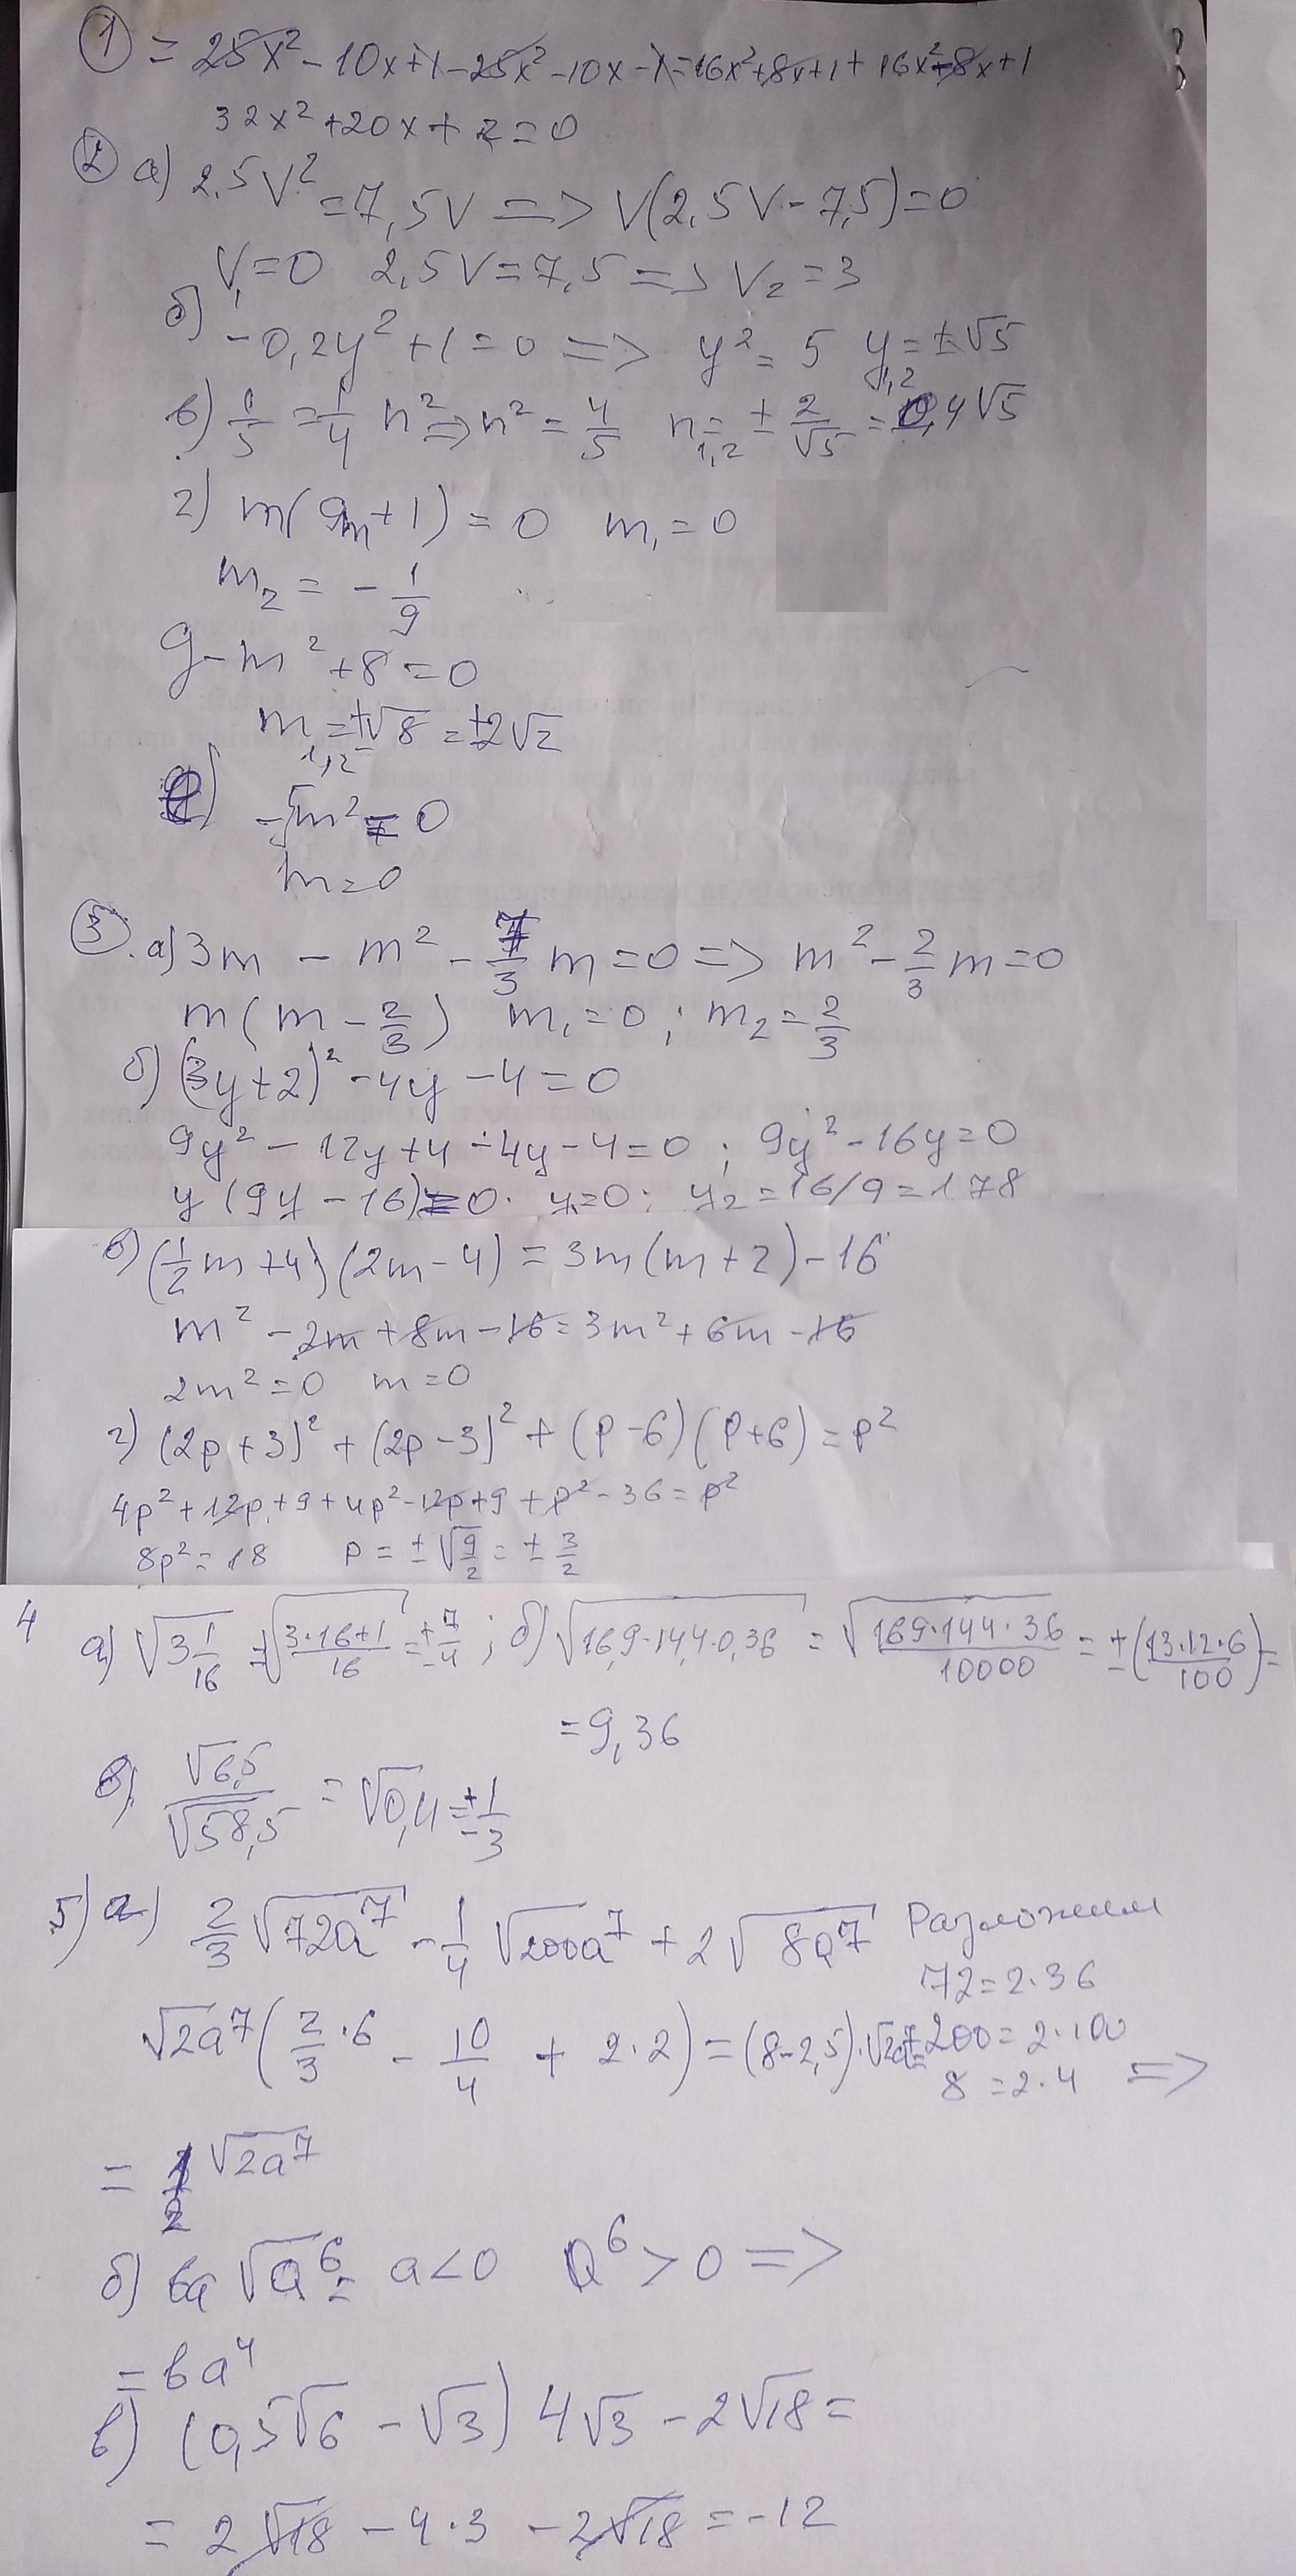 ① = 25x² - 10x + 1 - 25x² - 10x - 1 = 16x² + 8x + 1 + 16x² - 8x + 1
32x² + 20x + 2 = 0
② а) 2,5V² = 7,5V => V(2,5V - 7,5) = 0
V₁ = 0 2,5V = 7,5 => V₂ = 3
б) -0,2y² + 1 = 0 => y² = 5 y₁,₂ = ±√5
в) 1/5 = 1/4 n² => n² = 4/5 n₁,₂ = ± 2/√5 = 0,4√5
г) m(9m + 1) = 0 m₁ = 0
m₂ = - 1/9
g - m² + 8 = 0
m₁,₂ = ±√8 = ±2√2
е) -5m² = 0
m = 0
③. а) 3m - m² - 7/3 m = 0 => m² - 2/3 m = 0
m(m - 2/3) m₁ = 0; m₂ = 2/3
б) (3y + 2)² - 4y - 4 = 0
9y² - 12y + 4 - 4y - 4 = 0; 9y² - 16y = 0
y(9y - 16) = 0. y₁ = 0; y₂ = 16/9 = 1 78
в) (1/2 m + 4)(2m - 4) = 3m(m + 2) - 16
m² - 2m + 8m - 16 = 3m² + 6m - 16
2m² = 0 m = 0
г) (2p + 3)² + (2p - 3)² + (p - 6)(p + 6) = p²
4p² + 12p + 9 + 4p² - 12p + 9 + p² - 36 = p²
8p² = 18 p = ±√9/2 = ± 3/2
4 а) √3 1/16 = √(3·16+1)/16 = ± 7/4; б) √16,9·14,4·0,36 = √169·144·36/10000 = ±(13·12·6/100) =
= 9,36
в) √6,5/√58,5 = √0,11 = ± 1/3
5) а) 2/3 √72a⁷ - 1/4 √200a⁷ + 2√8a⁷ Разложим
72 = 2·36
√2a⁷ (2/3 · 6 - 10/4 + 2·2) = (8 - 2,5)·√2a⁷ = 200 = 2·100
8 = 2·4 =>
= 1/2 √2a⁷
б) 6a √a⁶ = a < 0 a⁶ > 0 =>
= 6a⁴
в) (0,5√6 - √3) 4√3 - 2√18 =
= 2√18 - 4·3 - 2√18 = -12